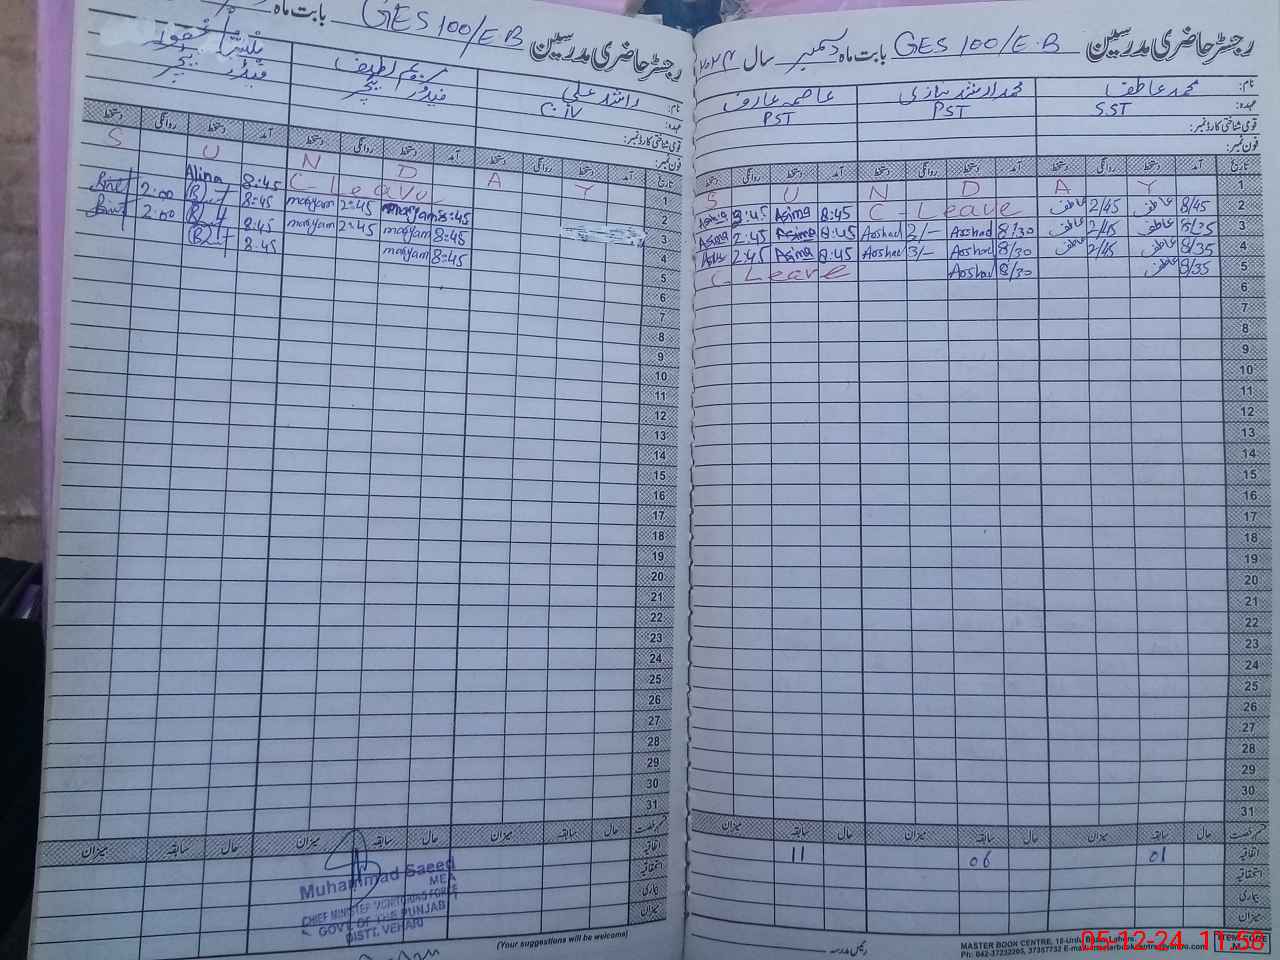 رجسٹر حاضری مدرسین GES 100/E.B بابت ماہ دسمبر سال ۲۰۲۴
نام: محمد عاطف محمد ارشد نیازی عاصمہ عارف
عہدہ: SST PST PST
قومی شناختی کارڈ نمبر:
فون نمبر:
تاریخ آمد دستخط روانگی دستخط آمد دستخط روانگی دستخط آمد دستخط روانگی دستخط
1 S U N D A Y
2 8/45 عاطف 2/45 عاطف C-Leave 8:45 Asima
3 8/35 عاطف 2/45 عاطف 8/30 Arshad 2/- Arshad 8:45 Asima 2:45 Asima
4 8/35 عاطف 2/45 عاطف 8/30 Arshad 3/- Arshad 8:45 Asima 2:45
5 8/35 عاطف 8/30 Arshad C Leave
6
7
8
9
10
11
12
13
14
15
16
17
18
19
20
21
22
23
24
25
26
27
28
29
30
31
حال سابقہ میزان حال سابقہ میزان حال سابقہ میزان
اتفاقیہ 01 06 11
استحقاقیہ
بیماری
میزان
MASTER BOOK CENTRE, 16-Urdu Bazar Lahore.
Ph: 042-37232205, 37357732
ITEM CODE
05-12-24 11:56
رجسٹر حاضری مدرسین GES 100/E.B بابت ماہ
نام: راشد علی مریم لطیف
عہدہ: C-IV
قومی شناختی کارڈ نمبر:
فون نمبر:
تاریخ آمد دستخط روانگی دستخط آمد دستخط روانگی دستخط آمد دستخط روانگی دستخط
1 S U N D A Y
2 C-Leave 8:45 Alina
3 8:45 maryam 2:45 maryam 8:45 2:00
4 8:45 maryam 2:45 maryam 8:45 2:00
5 8:45 maryam 8:45
6
7
8
9
10
11
12
13
14
15
16
17
18
19
20
21
22
23
24
25
26
27
28
29
30
31
حال سابقہ میزان حال سابقہ میزان حال سابقہ میزان
Muhammad Saeed
MEA
CHIEF MINISTER MONITORING FORCE
GOVT. OF THE PUNJAB
DISTT. VEHARI
(Your suggestions will be welcome)